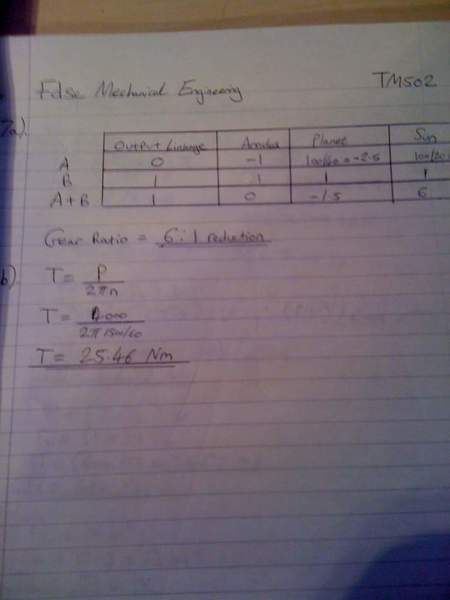 Fdsc Mechanical Engineering TM502
7a).
Output Linkage Annulus Planet Sun
A 0 -1 -2.5 100/20
B 1 1 1 1
A+B 1 0 -1.5 6
Gear Ratio = 6:1 reduction
b) T = P
2πn
T = 4000
2π 1500/60
T = 25.46 Nm